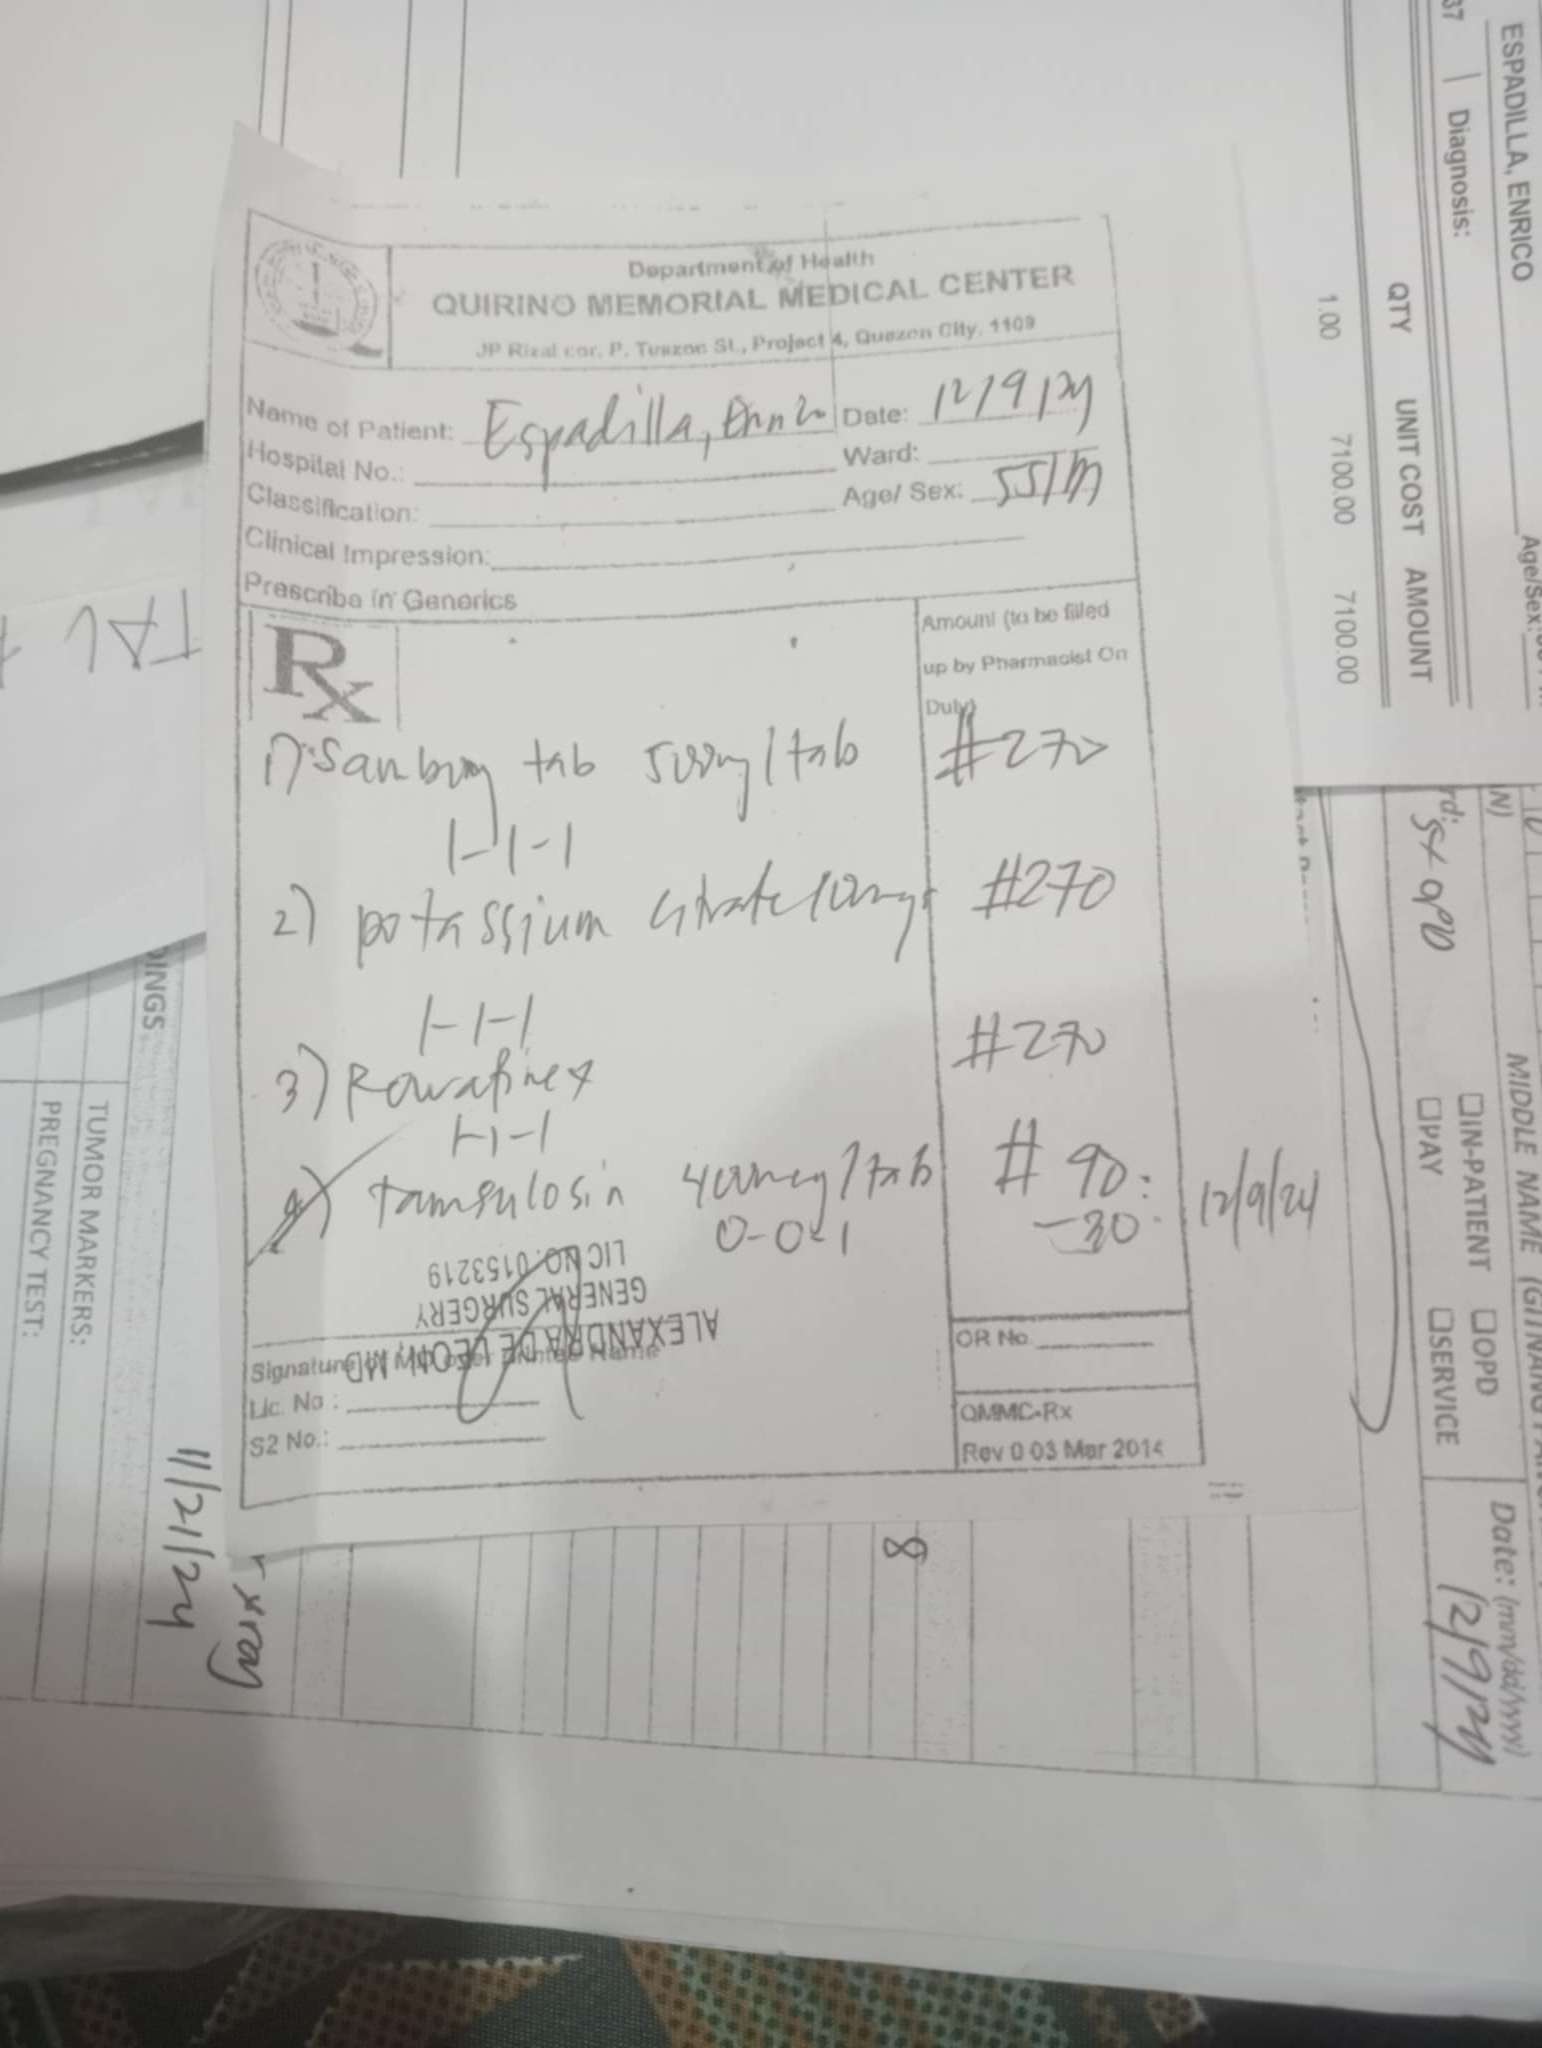 Department of Health
QUIRINO MEMORIAL MEDICAL CENTER
JP Rizal cor. P. Tuazon St., Project 4, Quezon City, 1109
Name of Patient: Espadilla, Date: 12/9/24
Hospital No.: Ward:
Classification: Age/ Sex: 55/M
Clinical Impression:
Prescribe in Generics
Rx
Amount (to be filled
up by Pharmacist On
Duty)
1) tab 500mg/tab #270
1-1-1
2) potassium citrate #270
1-1-1
3) Rowatinex #270
1-1-1
4) tamsulosin 400mcg/tab # 90:
0-0-1 -30: 12/9/24
ALEXANDRA DE LEON, MD
GENERAL SURGERY
LIC NO. 0153219
Signature of over printed Name
Lic. No :
S2 No.:
OR No.
QMMC-Rx
Rev 0 03 Mar 2014
ESPADILLA, ENRICO
Age/Sex:
37 | Diagnosis:
QTY UNIT COST AMOUNT
1.00 7100.00 7100.00
MIDDLE NAME
IN-PATIENT OPD
PAY SERVICE
Date: (mm/dd/yyyy)
12/9/24
DINGS
TUMOR MARKERS:
PREGNANCY TEST:
11/21/24
xray
8